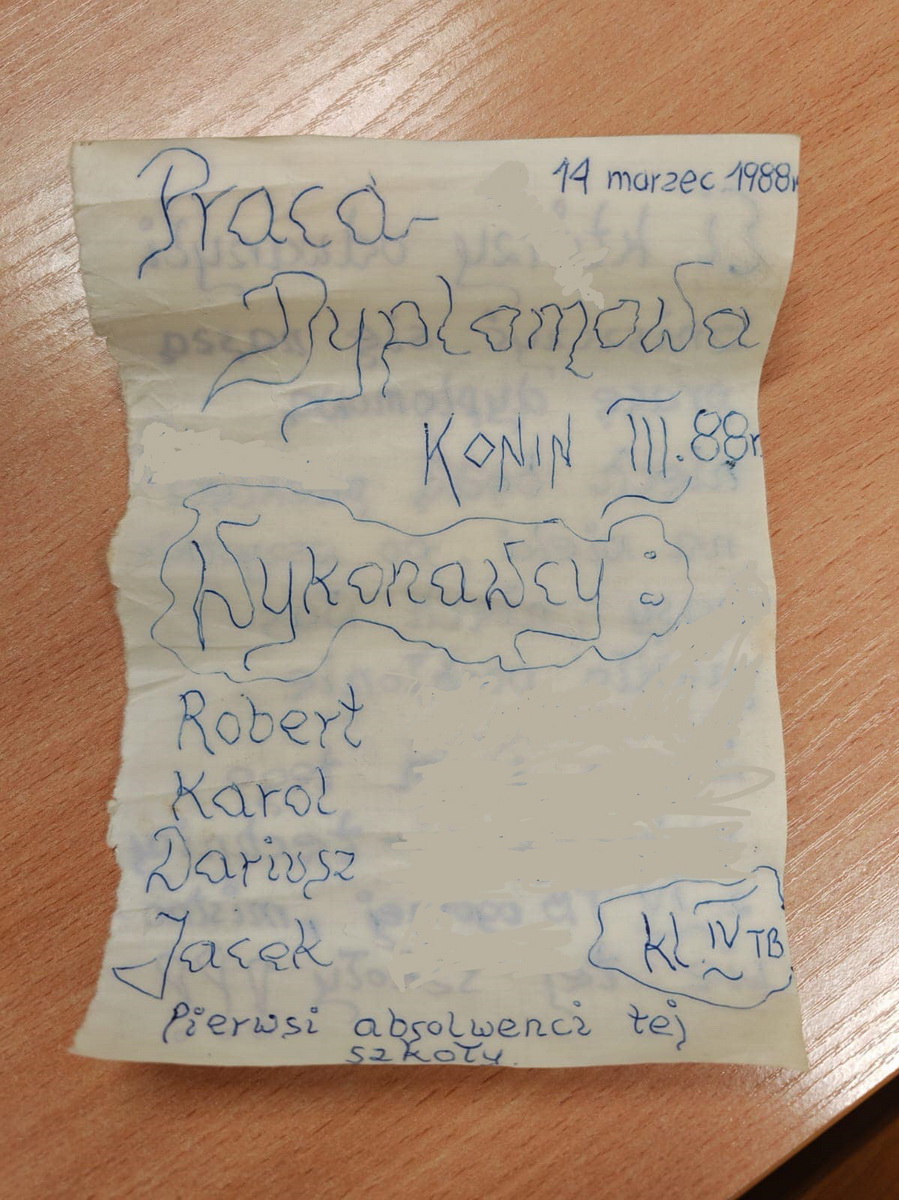 14 marzec 1988r
Praca
Dyplomowa
KONIN III.88r
Wykonawcy:
Robert
Karol
Dariusz
Jacek
kl. IV TB
Pierwsi absolwenci tej
szkoły.